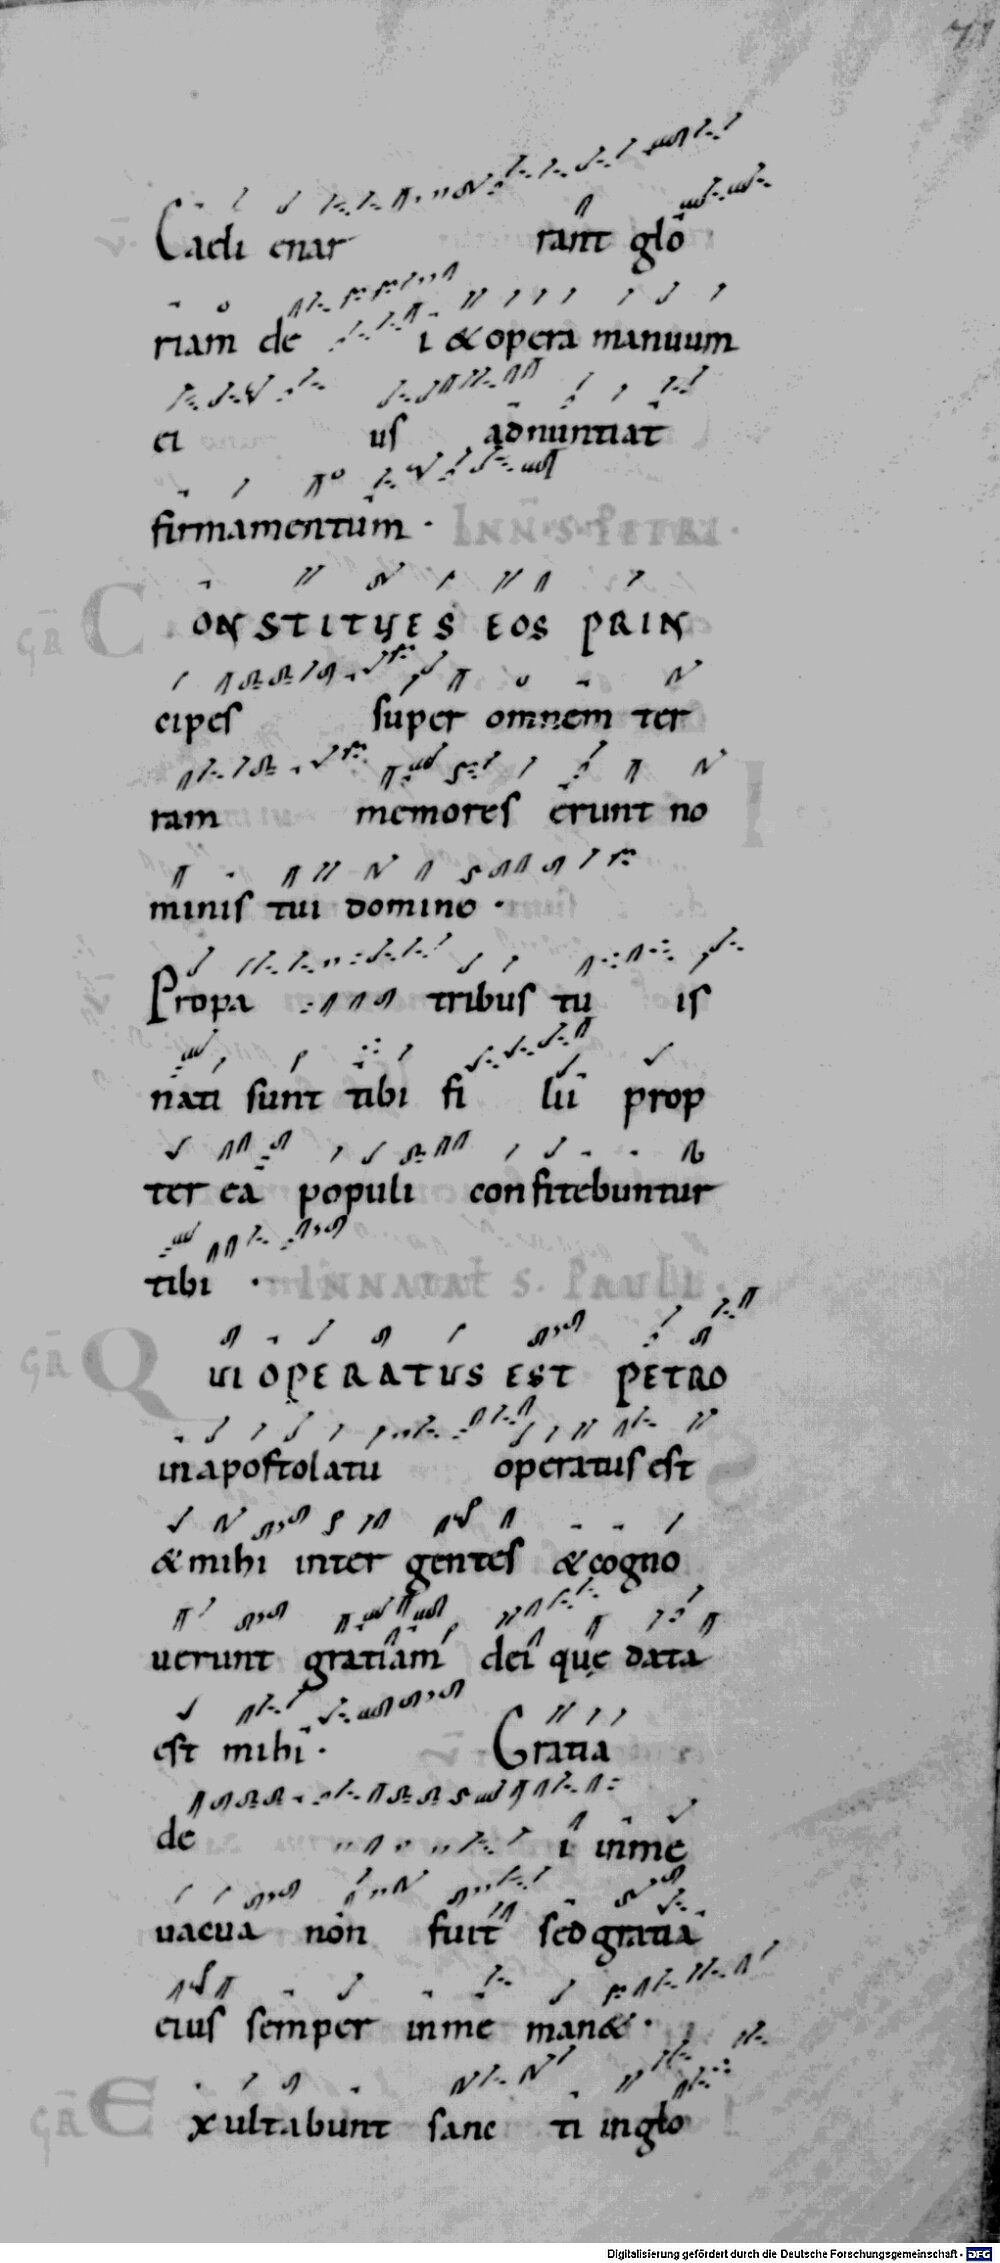 71
Caeli enar rant glo
riam de i & opera manuum
ei us adnuntiat
firmamentum ·
INN · S · PETRI ·
GRĀ CONSTITUES EOS PRIN
cipes super omnem ter
ram memores erunt no
minis tui domino ·
V̄ Propa tribus tu is
nati sunt tibi fi lii prop
ter ea populi confitebuntur
tibi · IN NATAŁ S. PAULI ·
GRĀ QUI OPERATUS EST PETRO
in apostolatu operatus est
& mihi inter gentes & cogno
uerunt gratiam dei quę data
est mihi · Gratia
de i in me
uacua non fuit sed gratia
eius semper in me man& ·
GRĀ Exultabunt sanc ti in glo
Digitalisierung gefördert durch die Deutsche Forschungsgemeinschaft - DFG